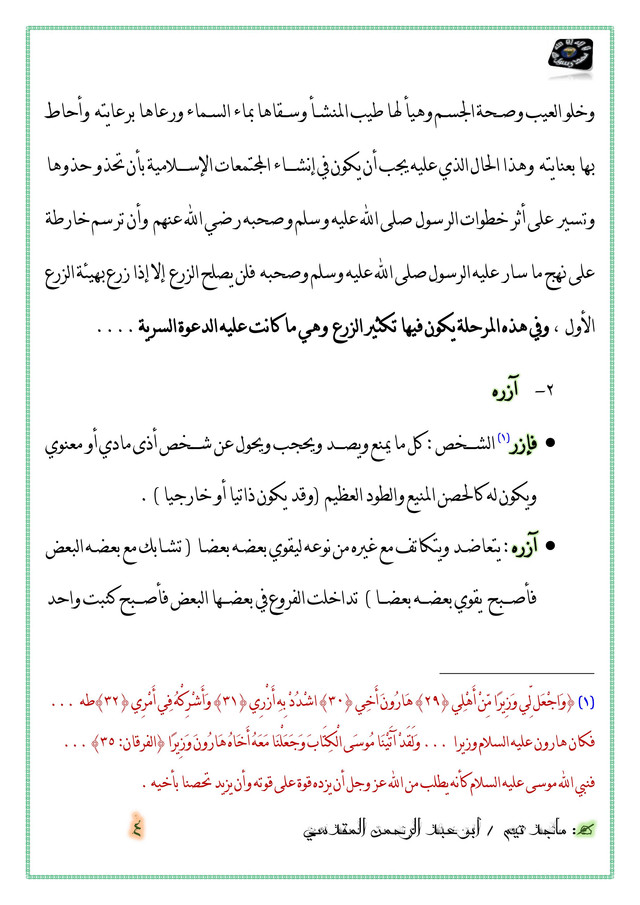 وخلو العيب وصحة الجسم وهيأ لها طيب المنشأ وسقاها بماء السماء ورعاها برعايته وأحاط
بها بعنايته وهذا الحال الذي عليه يجب أن يكون في إنشاء المجتمعات الإسلامية بأن تحذو حذوها
وتسير على أثر خطوات الرسول صلى الله عليه وسلم وصحبه رضي الله عنهم وأن ترسم خارطة
على نهج ما سار عليه الرسول صلى الله عليه وسلم وصحبه فلن يصلح الزرع إلا إذا زرع بهيئة الزرع
الأول ، وفي هذه المرحلة يكون فيها تكثير الزرع وهي ما كانت عليه الدعوة السرية . . . .
٢- آزره
• فإزر(١) الشخص : كل ما يمنع ويصد ويحجب ويحول عن شخص أذى مادي أو معنوي
ويكون له كالحصن المنيع والطود العظيم (وقد يكون ذاتيا أو خارجيا ) .
• آزره : يتعاضد ويتكاتف مع غيره من نوعه ليقوي بعضه بعضا ( تشابك مع بعضه البعض
فأصبح يقوي بعضه بعضا ) تداخلت الفروع في بعضها البعض فأصبح كنبت واحد
(١) ﴿وَاجْعَل لِّي وَزِيرًا مِّنْ أَهْلِي ﴿٢٩﴾ هَارُونَ أَخِي ﴿٣٠﴾ اشْدُدْ بِهِ أَزْرِي ﴿٣١﴾ وَأَشْرِكْهُ فِي أَمْرِي ﴿٣٢﴾ طه . . .
فكان هارون عليه السلام وزيرا . . . وَلَقَدْ آتَيْنَا مُوسَى الْكِتَابَ وَجَعَلْنَا مَعَهُ أَخَاهُ هَارُونَ وَزِيرًا ﴿الفرقان: ٣٥﴾ . . .
فنبي الله موسى عليه السلام كأنه يطلب من الله عز وجل أن يزده قوة على قوته وأن يزيد تحصنا بأخيه .
: ماجد تيم / أبن عبد الرحمن المقدسي
٤